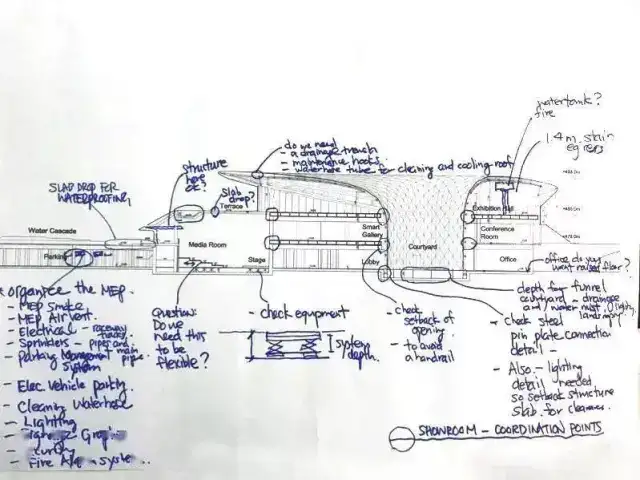 watertank?
fire
1.4m stair
egress
do we need
- a drainage trench
- maintenance hooks
- waterhose tube for cleaning and cooling roof
structure
here
ok?
SLAB DROP FOR
WATERPROOFING
slab
drop?
Terrace
Exhibition Hall
Water Cascade
Parking
Media Room
Stage
Smart
Gallery
Lobby
Courtyard
Conference
Room
Office
office do you
want raised floor?
* organize the MEP.
- MEP smoke
- MEP Air vent.
- Electrical - raceway
trays
- Sprinklers - pipes and
main
pipe
- Parking Management
system
- Elec. Vehicle parking.
- Cleaning Waterhose
- Lighting
- Fire system
Question:
Do we
need this
to be
flexible?
- check equipment
system
depth.
- check
setback of
opening
- to avoid
a handrail
depth for funnel
courtyard - drainage
and / water must
- Check steel
pin plate connection
detail -
- Also - lighting
detail needed
so setback structure
slab for
SHOWROOM - COORDINATION POINTS